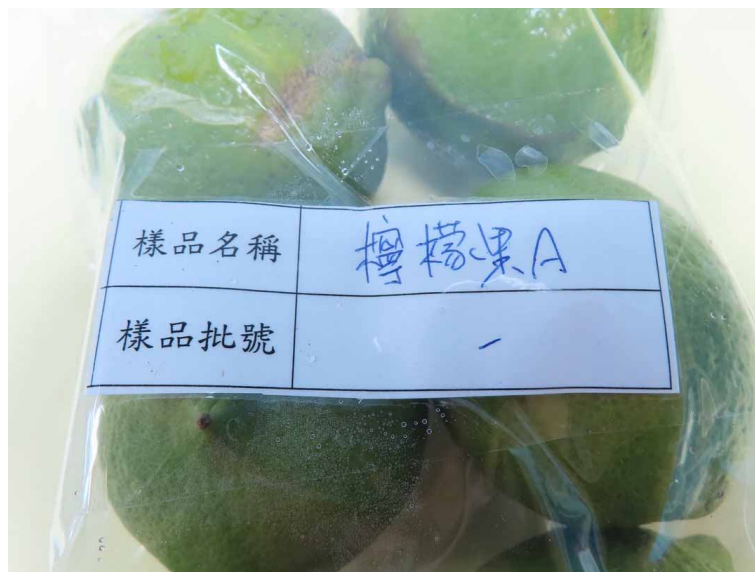 樣品名稱 檸檬果A
樣品批號 -